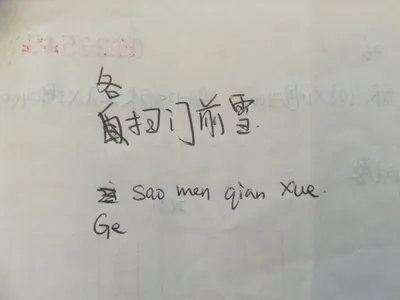 各
自扫门前雪.
sao men qian xue.
Ge